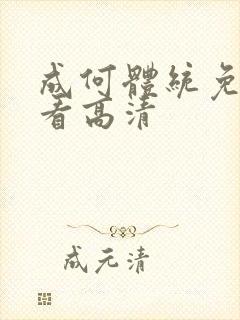 成何體統免
看高清
成元清